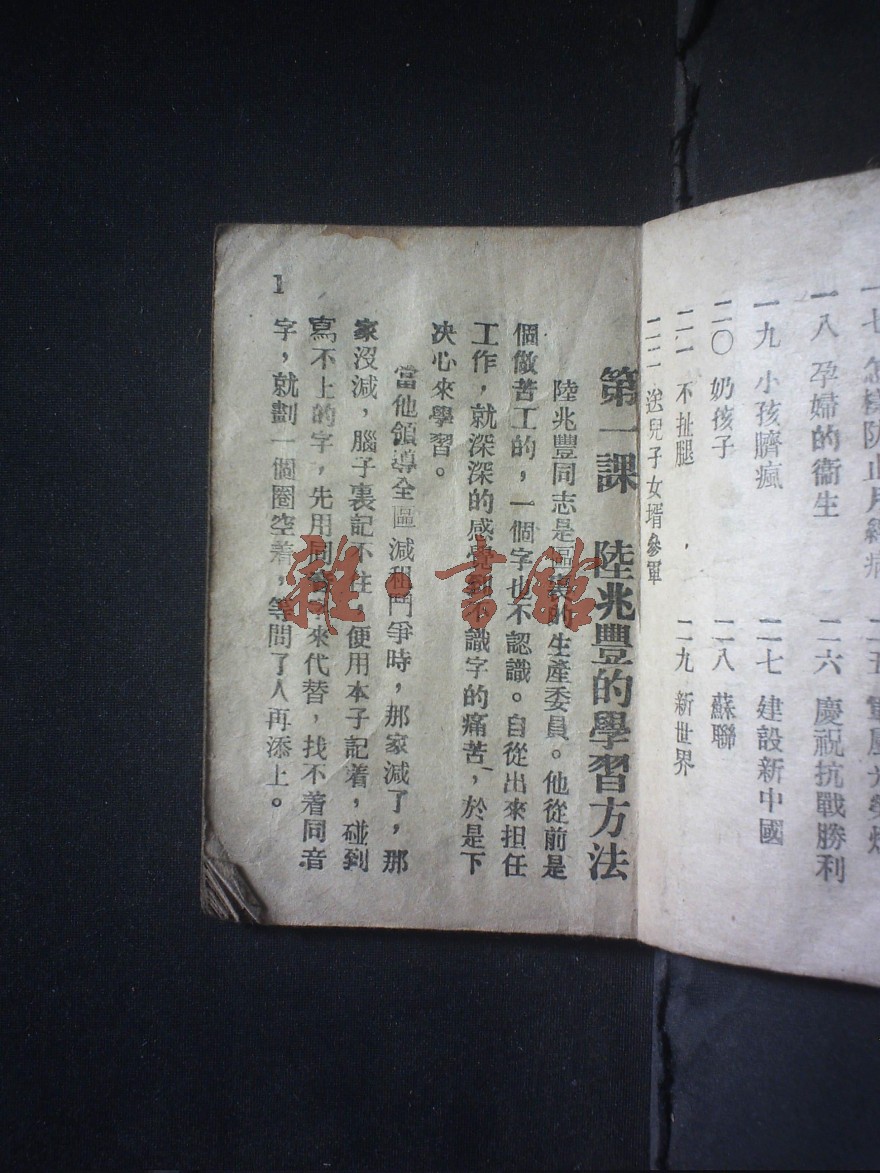 一七 怎樣防止月經病
一八 孕婦的衞生
一九 小孩臍瘋
二〇 奶孩子
二一 不扯腿
二二 送兒子女壻參軍
二五
二六 慶祝抗戰勝利
二七 建設新中國
二八 蘇聯
二九 新世界
第一課 陸兆豐的學習方法
陸兆豐同志是區裏的生產委員。他從前是
個做苦工的，一個字也不認識。自從出來担任
工作，就深深的感覺到不識字的痛苦，於是下
决心來學習。
當他領導全區減租鬥爭時，那家減了，那
家沒減，腦子裏記不住，便用本子記着，碰到
寫不上的字，先用同音字來代替，找不着同音
字，就劃一個圈空着，等問了人再添上。
1
雜·書館